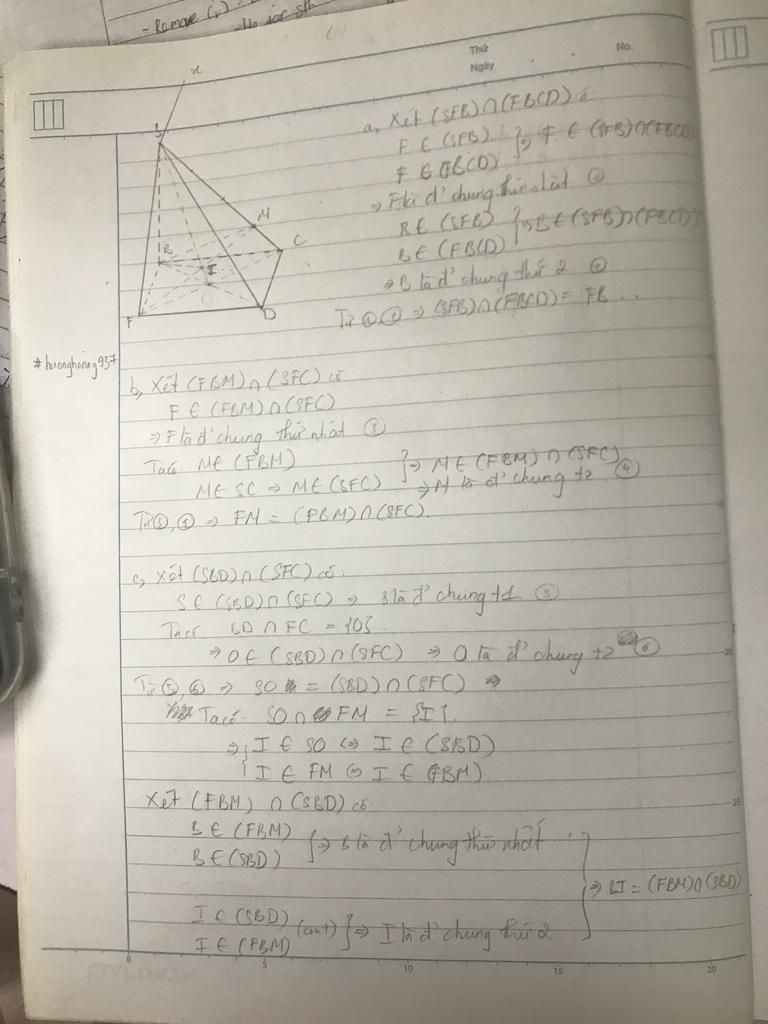 - Remove (v)
Thứ
Ngày
No.
x
S
M
B
C
I
O
F
D
a, Xét (SFB)∩(FBCD) có
F ∈ (SFB)
F ∈ (FBCD) } ⇒ F ∈ (SFB)∩(FBCD)
⇒ F là đ' chung thứ nhất ①
B ∈ (SFB)
B ∈ (FBCD) } ⇒ B ∈ (SFB)∩(FBCD)
⇒ B là đ' chung thứ 2 ②
Từ ①, ② ⇒ (SFB)∩(FBCD) = FB
#huonghoang937
b, Xét (FBM)∩(SFC) có
F ∈ (FBM)∩(SFC)
⇒ F là đ' chung thứ nhất ③
Ta có M ∈ (FBM)
M ∈ SC ⇒ M ∈ (SFC) } ⇒ M ∈ (FBM)∩(SFC)
⇒ M là đ' chung t2 ④
Từ ③, ④ ⇒ FM = (FBM)∩(SFC)
c, Xét (SBD)∩(SFC) có
S ∈ (SBD)∩(SFC) ⇒ S là đ' chung t1 ⑤
Ta có BD∩FC = {O}
⇒ O ∈ (SBD)∩(SFC) ⇒ O là đ' chung t2 ⑥
Từ ⑤, ⑥ ⇒ SO = (SBD)∩(SFC) ⇒
Ta có SO∩FM = {I}
⇒ { I ∈ SO ⇔ I ∈ (SBD)
I ∈ FM ⇔ I ∈ (FBM)
Xét (FBM)∩(SBD) có
B ∈ (FBM)
B ∈ (SBD) } ⇒ B là đ' chung thứ nhất
⇒ BI = (FBM)∩(SBD)
I ∈ (SBD)
I ∈ (FBM) (cmt) } ⇒ I là đ' chung thứ 2
0 5 10 15 20